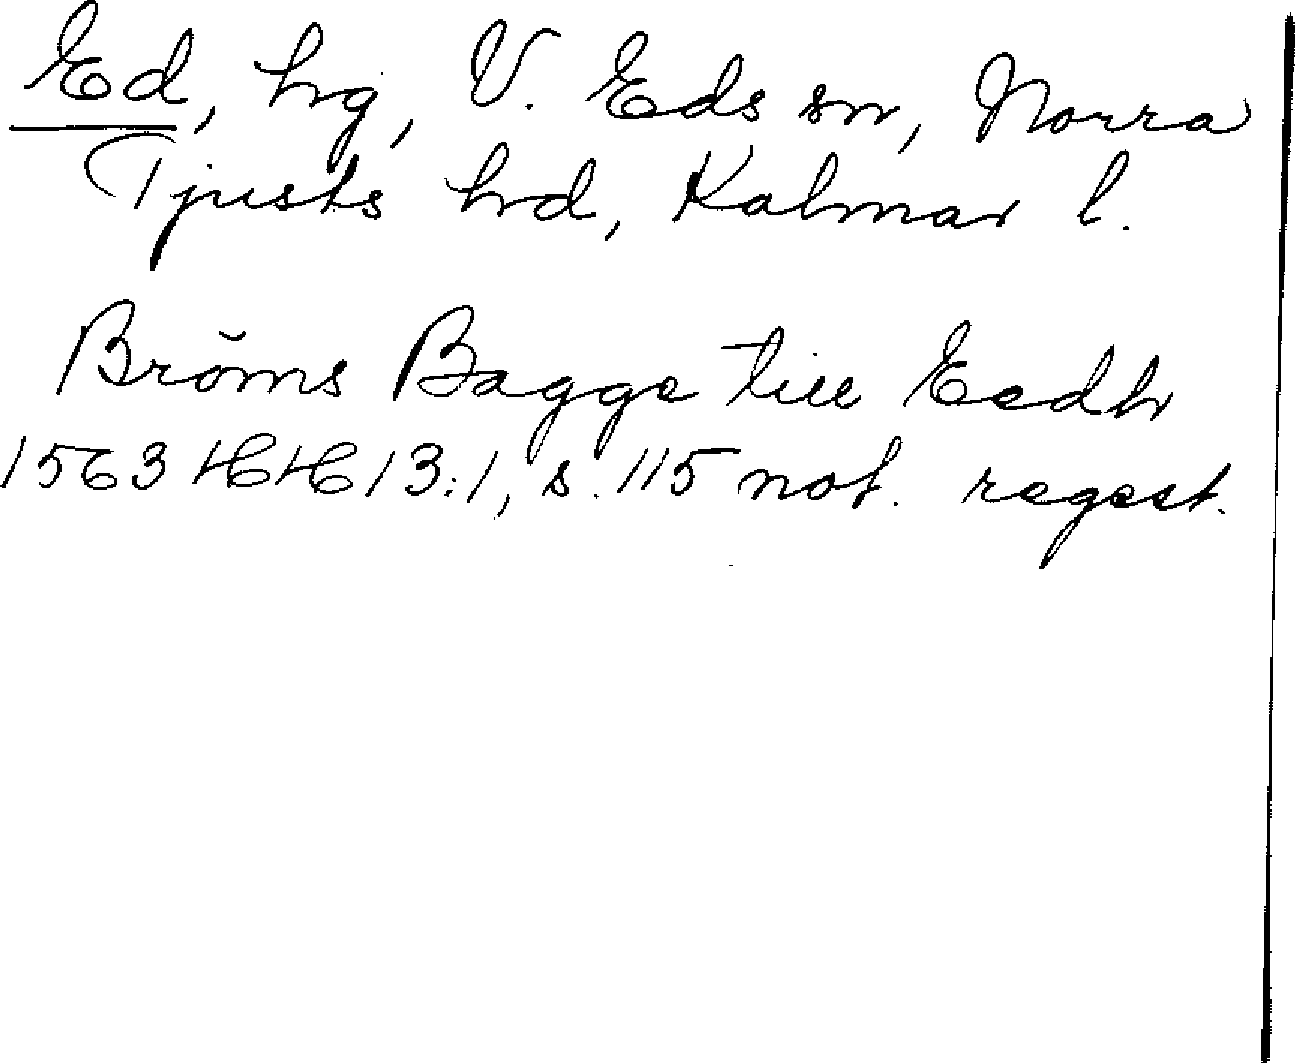 Ed, hg, V. Eds sn, Norra
Tjusts hd, Kalmar l.
Brŏms Bagge till Eedh
1563 HH 13:1, s. 115 not. regest.